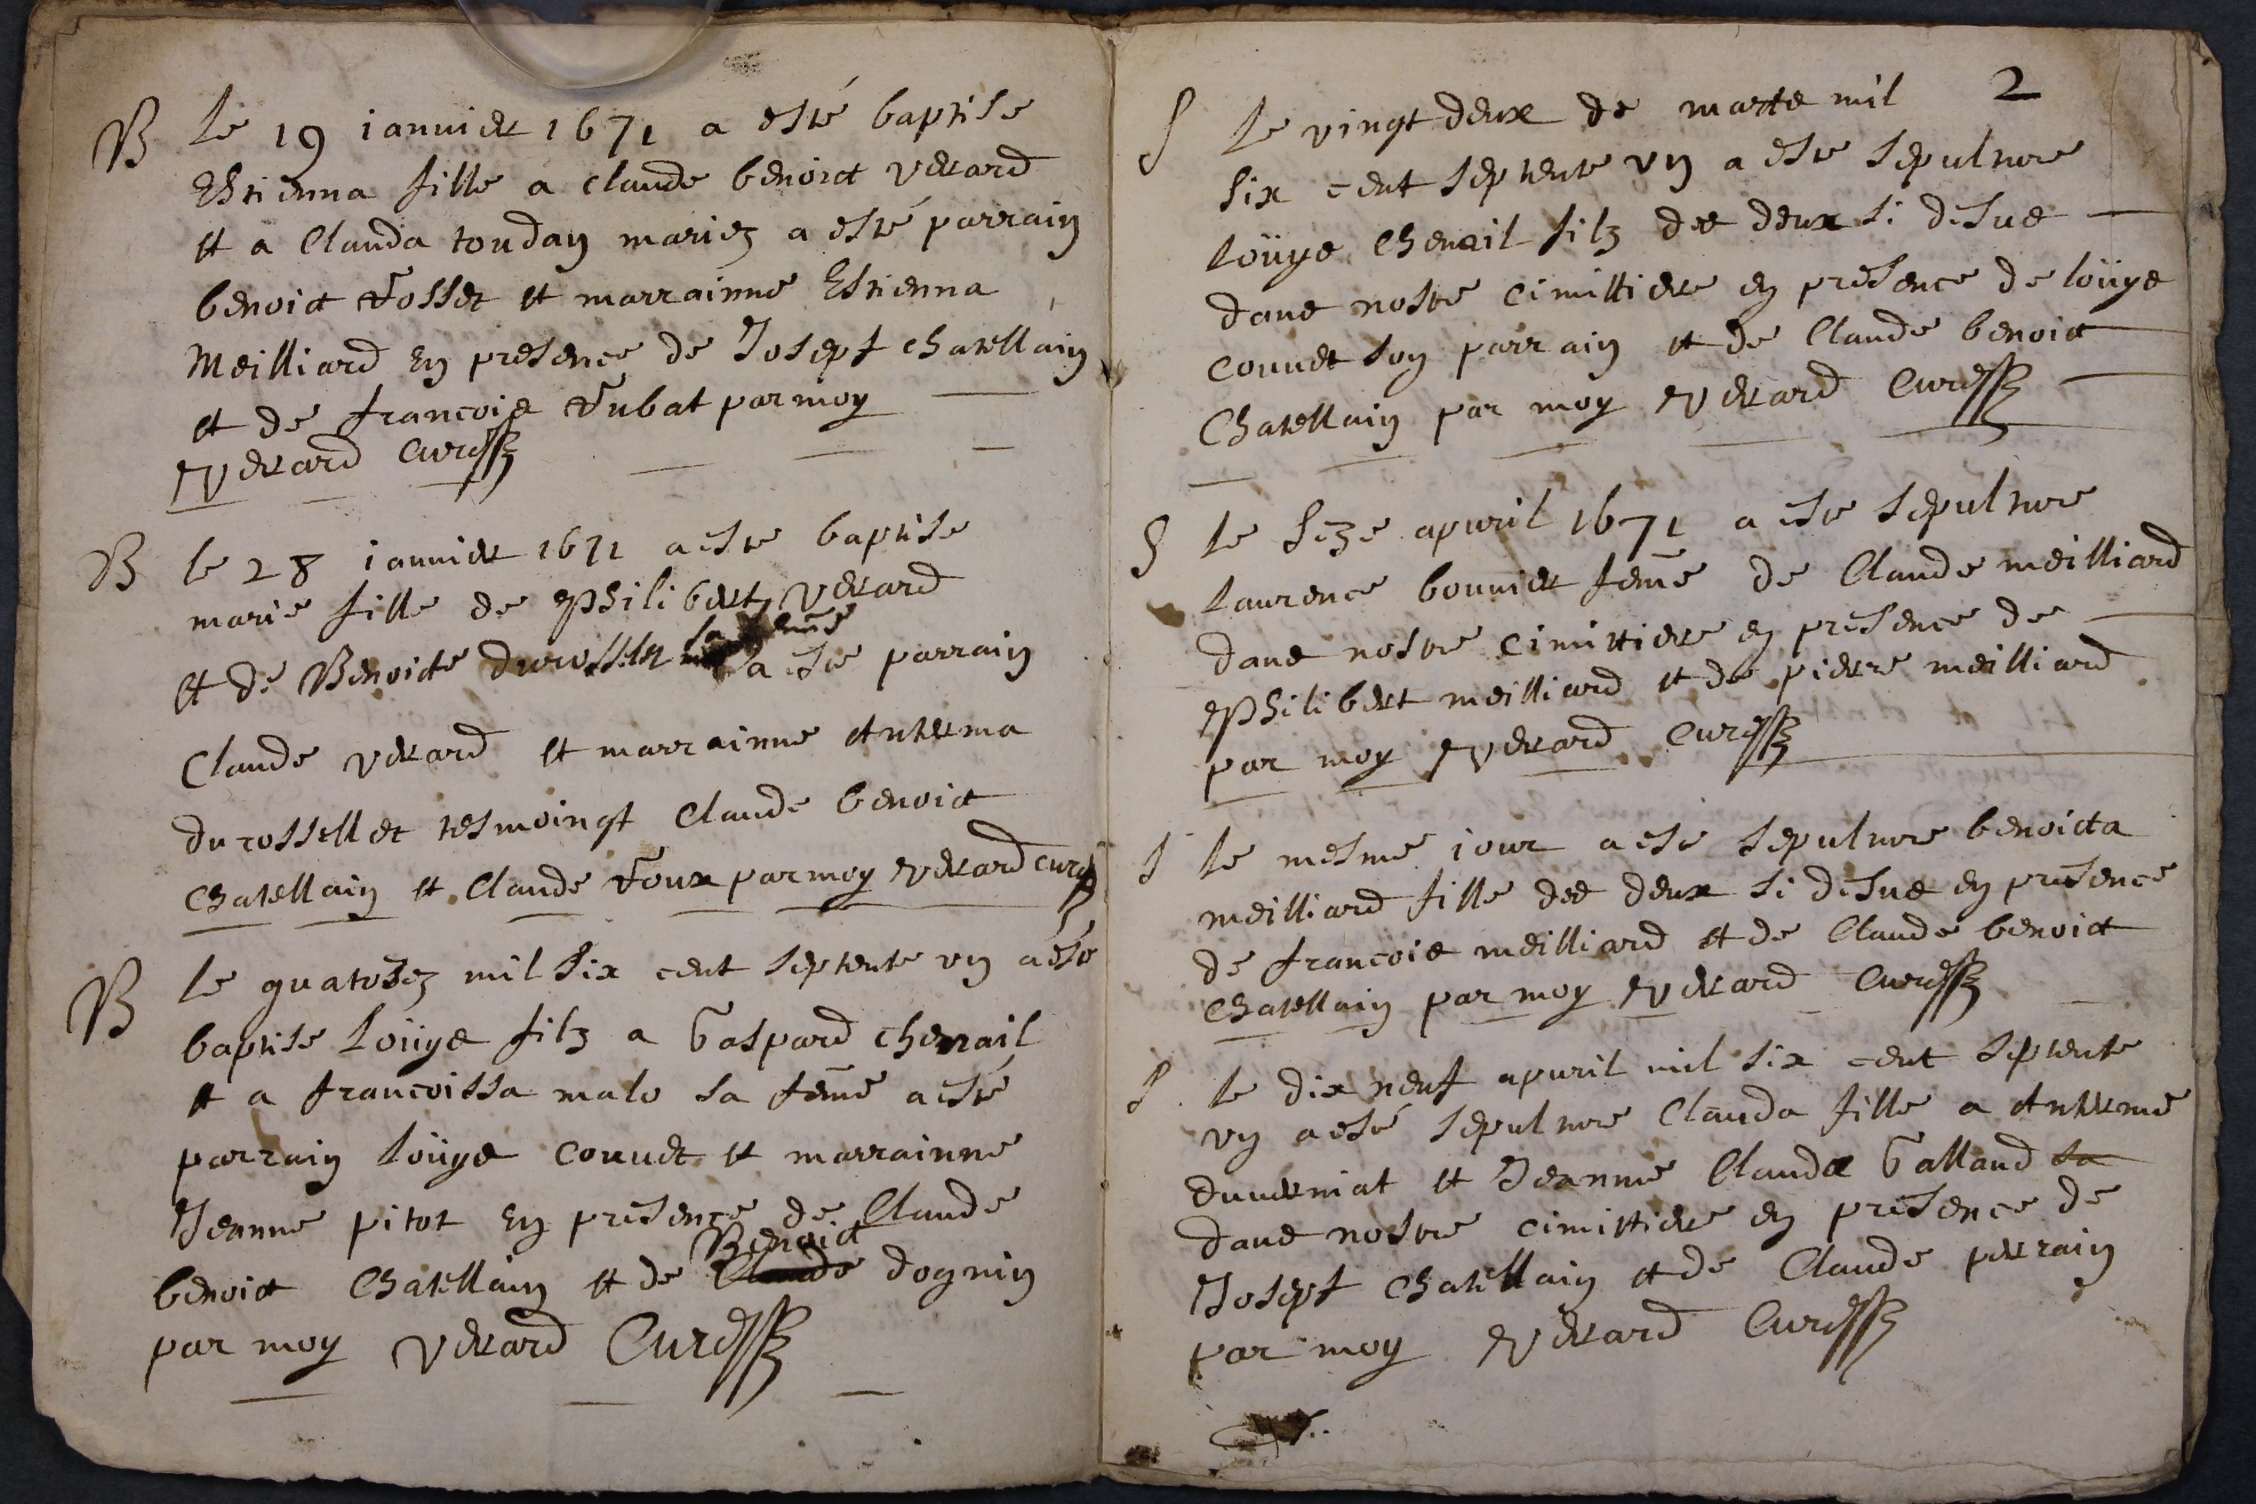 B Le 19 ianuier 1671 a esté baptise
Estienna fille a claude benoict verard
et a Clauda toudan mariez a esté parrain
benoict fosset et marrainne Estienna
Meilliard en presence de Josept chatellain
et de francois fubat par moy
Verard Cure
B le 28 ianuier 1671 a este baptise
marie fille de Philibert Verard
et de Benoicte durosset sa feme a este parrain
Claude verard et marrainne Anterma
du rossellet tesmoingt Claude benoict
Chatellain et Claude foux par moy Verard cure
B le quatosez mil six cent septente un a esté
baptise Loüys filz a Gaspard chenail
et a francoissa malo sa feme a esté
parrain loüys couuet et marrainne
Jeanne pitot en presence de Claude
benoict Chatellain et de Benoict dognin
par moy Verard Cure
2
S Le vingt deux de mars mil
six cent septente un a este sepulture
Loüys Chenail filz des deux si desus
dans nostre cimittiere en presence de loüys
couuet son parrain et de Claude benoict
Chatellain par moy Verard Cure
S le seze apuril 1671 a este sepulture
Laurence bouuier feme de Claude meilliard
dans nostre cimittiere en presence de
Philibert meilliard et de pierre meilliard
par moy Verard Cure
S le mesme iour a este sepulture benoicta
meilliard fille des deux si desus en presence
de francois meilliard et de Claude benoict
Chatellain par moy Verard Cure
S le dix neuf apuril mil six cent septente
un a esté sepulture Clauda fille a Anterme
duuerniat et Jeanne Clauda Galland sa
dans nostre cimittiere en presence de
Josept Chatellain et de Claude perrain
par moy Verard Cure